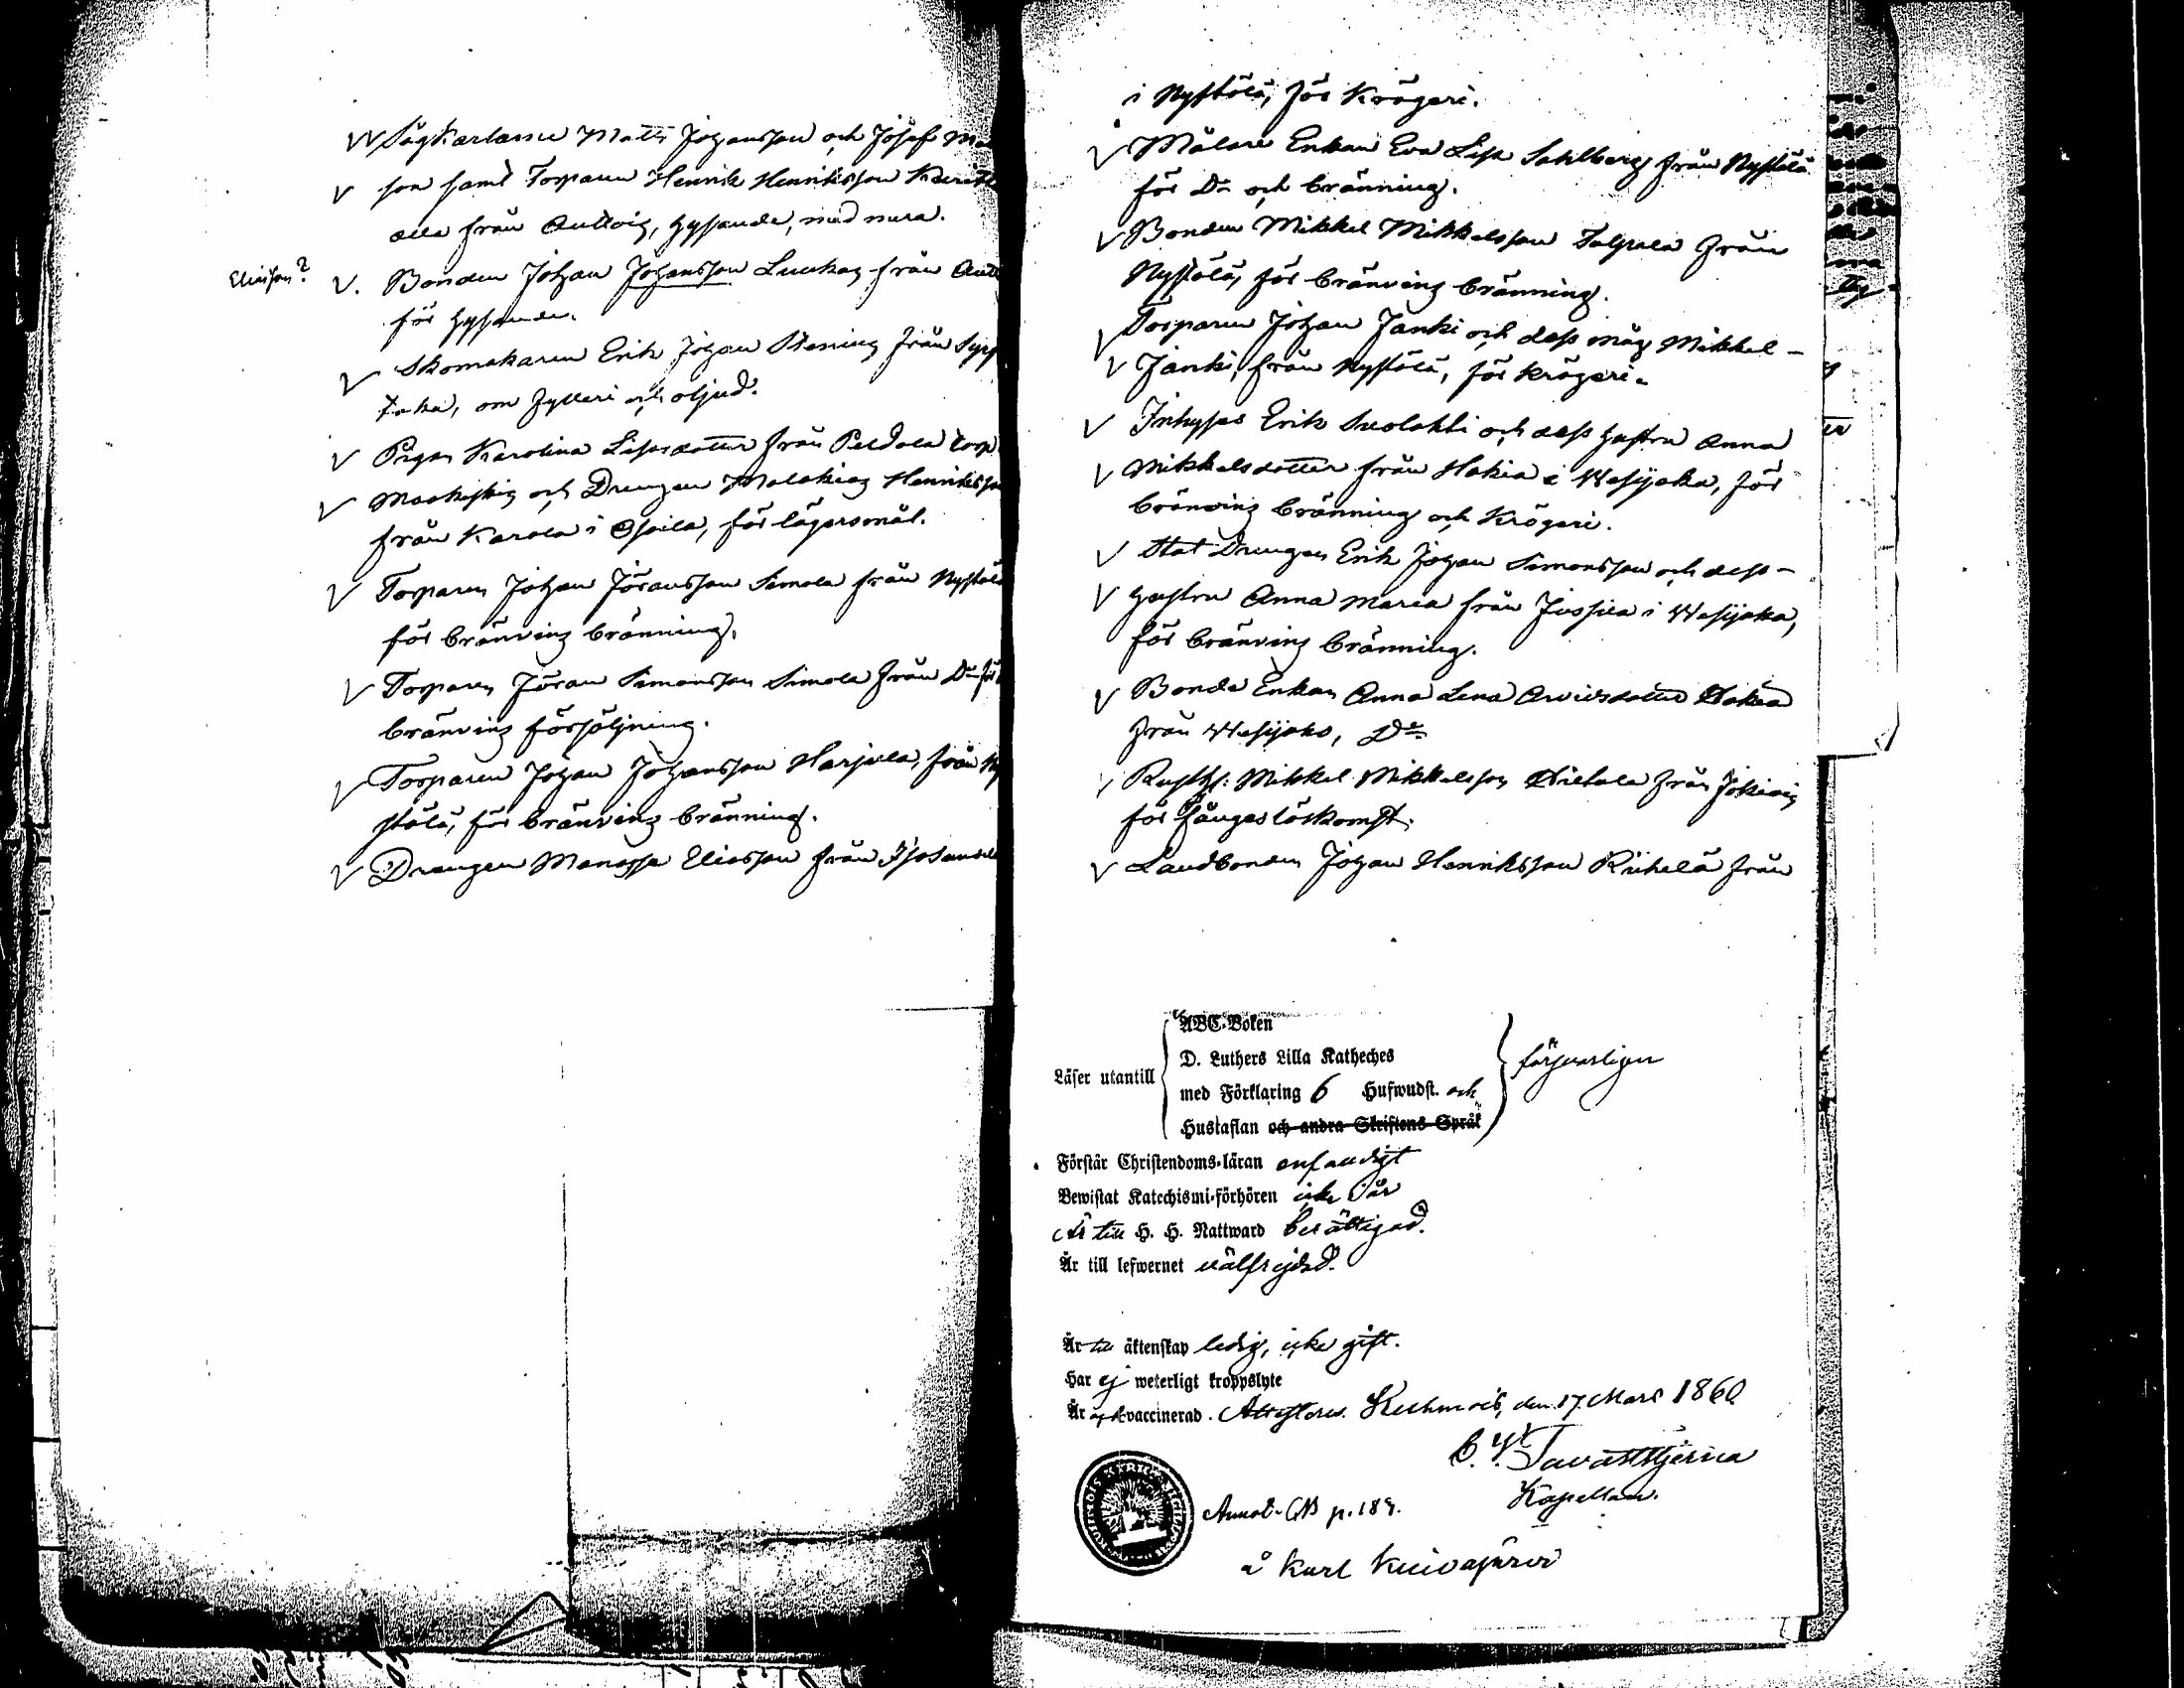 Sågkarlarne Matts Johansson och Josef
son samt Torparen Henrik Henriksson
alla från Auttois, hysande, med mera.
Eliasson?
V. Bonden Johan Johansson Luukas från
för hysande.
V Skomakaren Erik Johan Stening från
joka, om fylleri och oljud.
V Pigan Karolina Lisasdotter från Peldola torp
V Maakeskis och Drengen Malakias Henriksson
från Karola i Osoila, för lägersmål.
V Torparen Johan Jöransson Simola från Nystölä
för bränvins bränning.
V Torparen Jöran Simonsson Simola från Do för
bränvins försäljning.
V Torparen Johan Johansson Harjula, från Ny
stölä, för bränvins bränning.
V Drengen Manasse Eliasson från
i Nystölä, för Krögeri.
V Målare Enkan Eva Lisa Sahlberg från Nystölä
för Do och bränning.
V Bonden Mikkel Mikkelsson från
Nystölä, för bränvins bränning.
V Torparen Johan Janki och dess måg Mikkel
V Janki, från Nystölä, för krögeri.
V Inhyses Erik Suolahti och dess hustru Anna
V Mikkelsdotter från Hakia i Wesijako, för
bränvins bränning och Krögeri.
V Stat Drengen Erik Johan Simonsson och dess
V hustru Anna Maria från Jussila i Wesijako,
för bränvins bränning.
V Bonde Enkan Anna Lena Arvidsdotter Hakia
från Wesijako, Do
V Rusth: Mikkel Mikkelsson Hietala från Jokiois
för fånges löskomst.
V Landbonden Johan Henriksson Riihelä från
ABC-Boken
D. Luthers Lilla Katheches
Läser utantill
med Förklaring 6 Hufwudst. och
Hustaflan och andra Skriftens Språk
försvarligen
Förstår Christendoms-läran enfaldigt
Bewistat Katechismi-förhören icke i år
Är till H. H. Nattward berättigad.
Är till lefwernet välfrejdad.
Är till äktenskap ledig, icke gift.
Har ej weterligt kroppslyte
Är vaccinerad. Attesteras. Kuhmois, den 17 Mars 1860
Tavaststjerna
Kapellan.
Annot. p. 189.